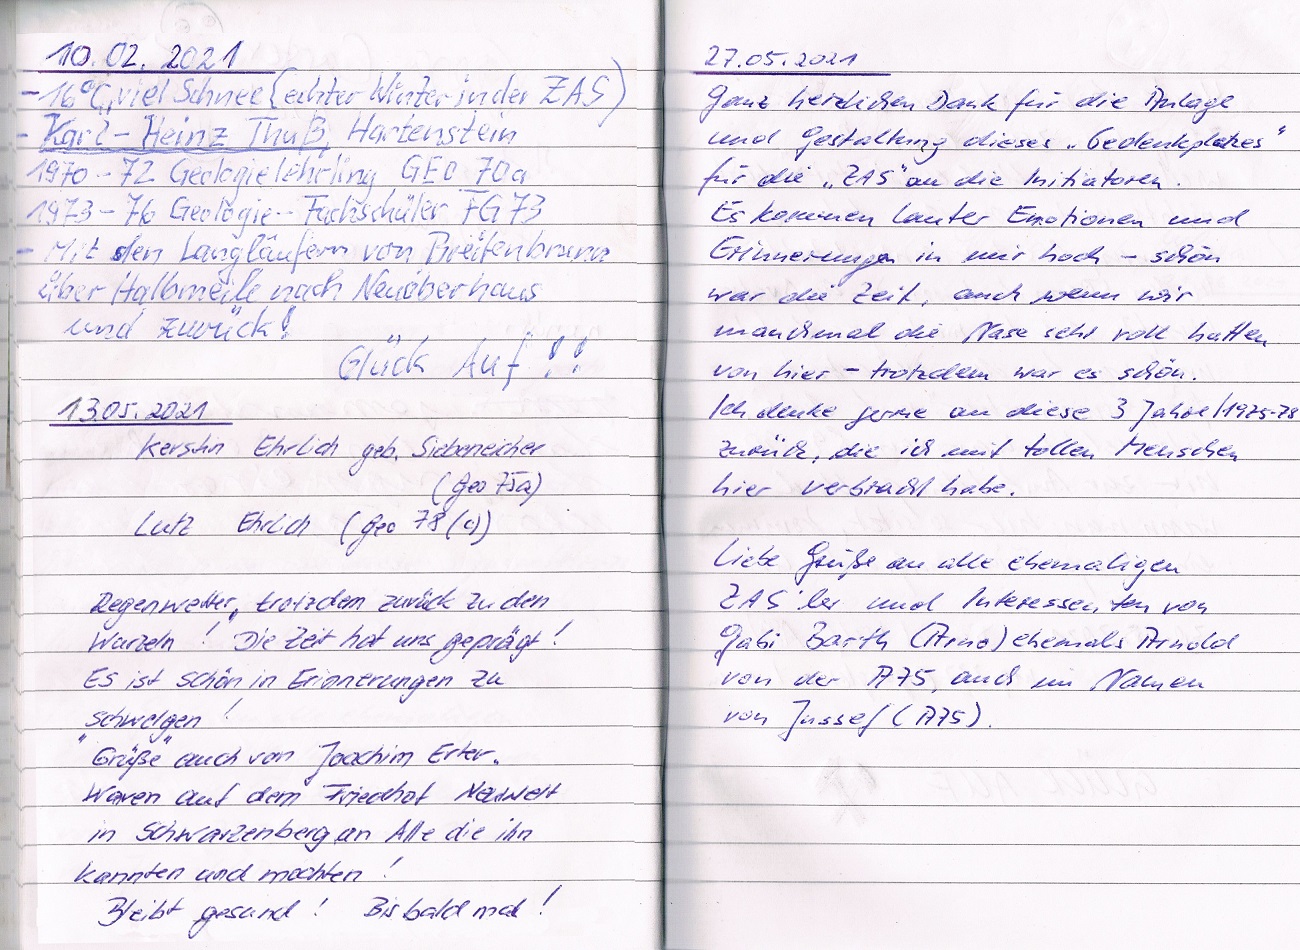 10.02.2021
- 16°C, viel Schnee (echter Winter in der ZAS)
- Karl-Heinz Thuß, Hartenstein
1970-72 Geologielehrling GEO 70a
1973-76 Geologie-Fachschüler FG73
- Mit den Langläufern von Breitenbrunn
über Halbmeile nach Neuoberhaus
und zurück!
Glück Auf!!
13.05.2021
Kerstin Ehrlich geb. Siebeneicher
(Geo 75a)
Lutz Ehrlich (Geo 78(c))
Regenwetter, trotzdem zurück zu den
Wurzeln! Die Zeit hat uns geprägt!
Es ist schön in Erinnerungen zu
schwelgen!
"Grüße" auch von Joachim Erler.
Waren auf dem Friedhof Neuwelt
in Schwarzenberg an Alle die ihn
kannten und mochten!
Bleibt gesund! Bis bald mal!
27.05.2021
Ganz herzlichen Dank für die Anlage
und Gestaltung dieses „Gedenkplatzes"
für die „ZAS" an die Initiatoren.
Es kommen lauter Emotionen und
Erinnerungen in mir hoch - schön
war die Zeit, auch wenn wir
manchmal die Nase sehr voll hatten
von hier - trotzdem war es schön.
Ich denke gerne an diese 3 Jahre/1975-78
zurück, die ich mit tollen Menschen
hier verbracht habe.
Liebe Grüße an alle ehemaligen
ZAS'ler und Interessenten von
Gabi Barth (Arno) ehemals Arnold
von der A75, auch im Namen
von Jussef (A75).